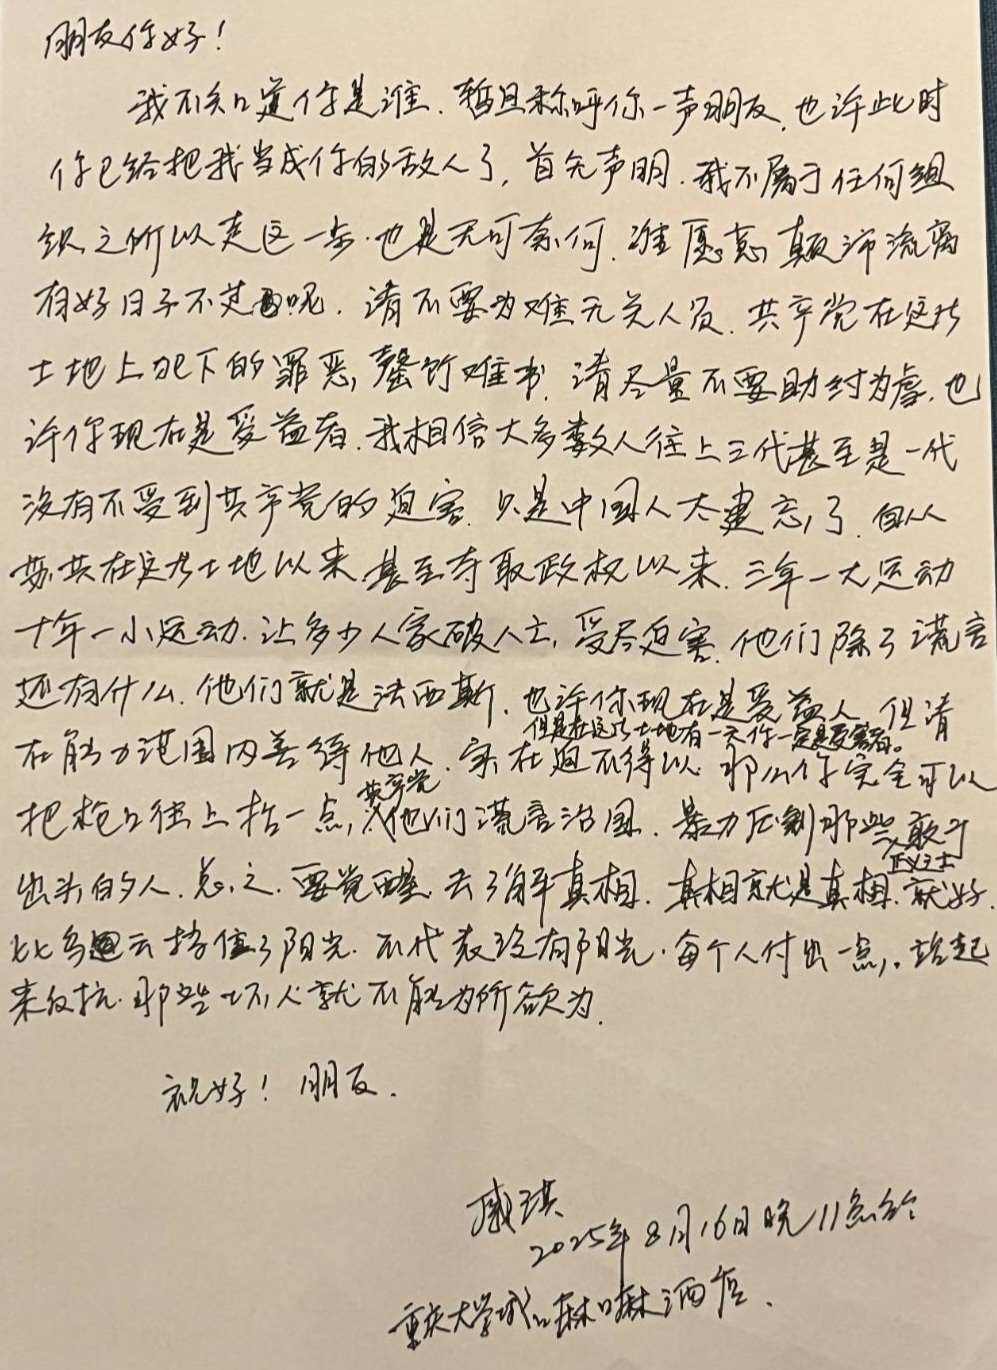 朋友你好！
我不知道你是谁．暂且称呼你一声朋友．也许此时
你已经把我当成你的敌人了．首先声明．我不属于任何组
织之所以走这一步．也是无可奈何．谁愿意颠沛流离
有好日子不过呢．请不要为难无关人员．共产党在这片
土地上犯下的罪恶，罄竹难书．请尽量不要助纣为虐．也
许你现在是受益者．我相信大多数人往上三代甚至是一代
没有不受到共产党的迫害．只是中国人太健忘了．自从
苏共在这片土地以来．甚至夺取政权以来．三年一大运动
十年一小运动．让多少人家破人亡，受尽迫害．他们除了谎言
还有什么．他们就是法西斯．也许你现在是受益人．但请
但是在这片土地有一天你一定是受害者。
在能力范围内善待他人．实在迫不得以．那么你完全可以
把枪口往上抬一点，共产党他们谎言治国．暴力压制那些敢于
出头的人．总之．要觉醒．去了解真相．真相就是真相．就好．
正义之士
比乌云挡住了阳光．不代表没有阳光．每个人付出一点，．站起
来反抗．那些坏人就不能为所欲为．
祝好！朋友．
戚琪
2025年8月16日晚11点
重庆大学城口麻口麻酒店．